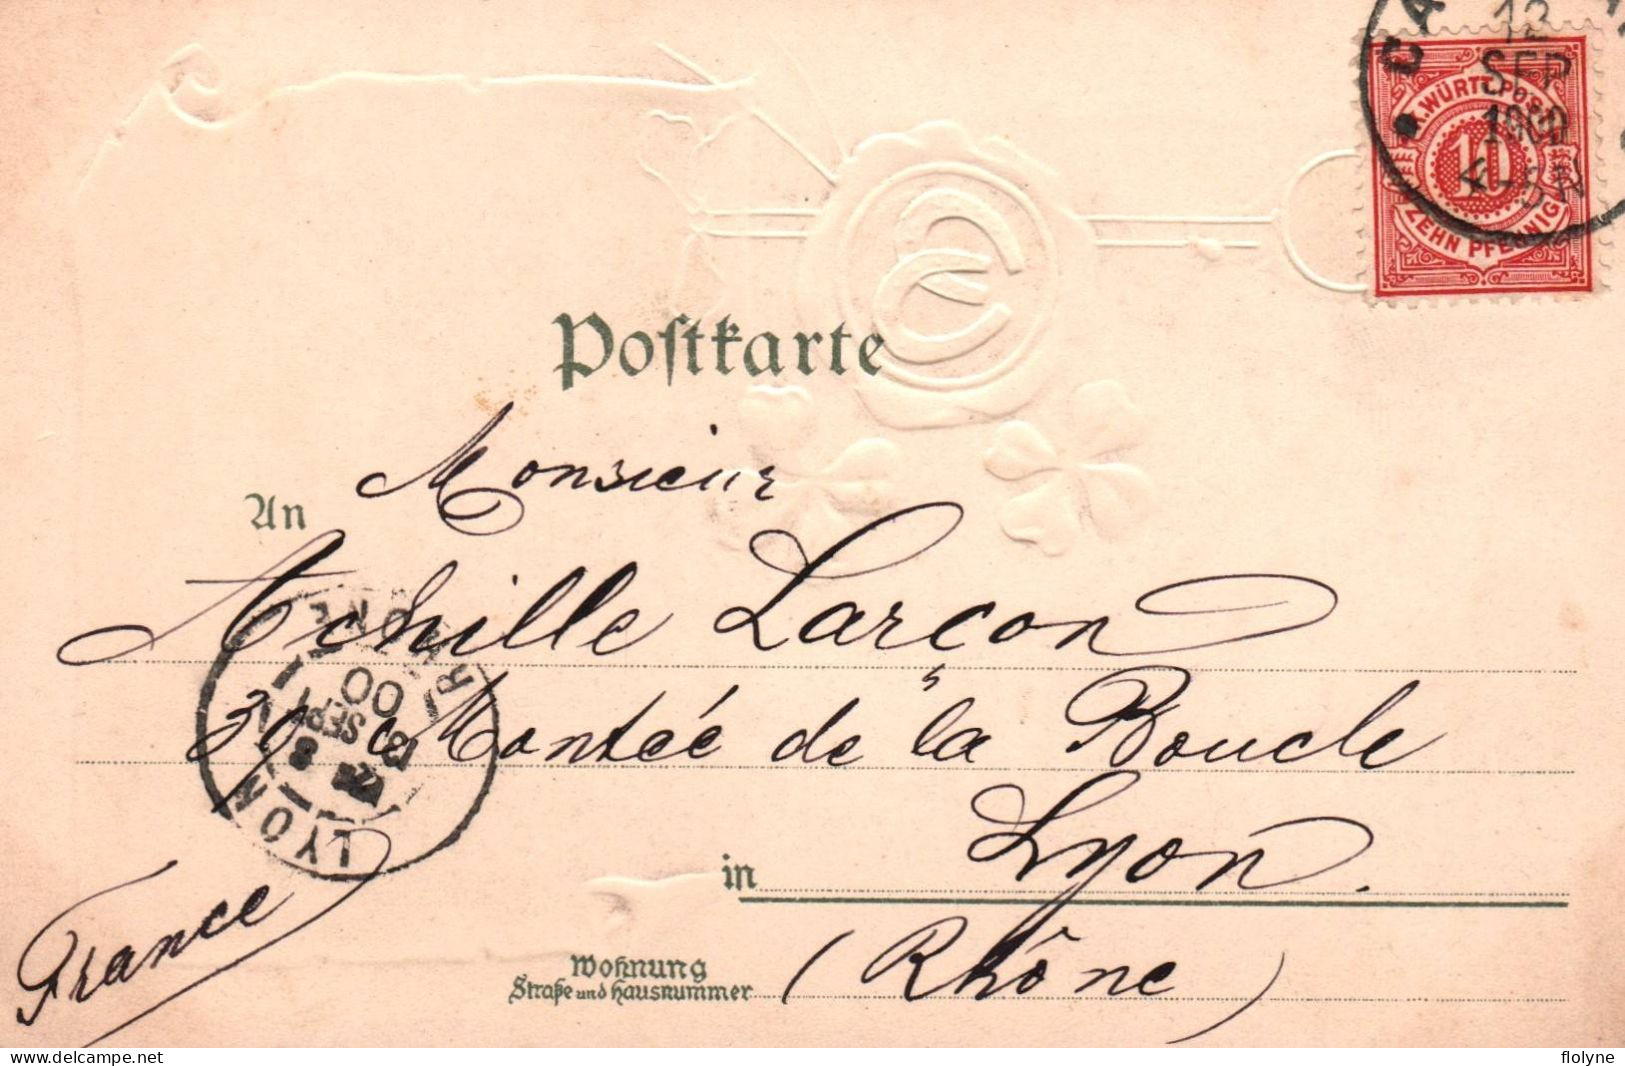 12
SEP
1900
K. WÜRTT. POST
10
ZEHN PFENNIG
Postkarte
An Monsieur
Achille Larçon
39 Montée de la Boucle
in Lyon.
(Rhône)
France
Wohnung
Straße und Hausnummer
LYON
RHONE
13
SEPT
00
delcampe.net
flolyne